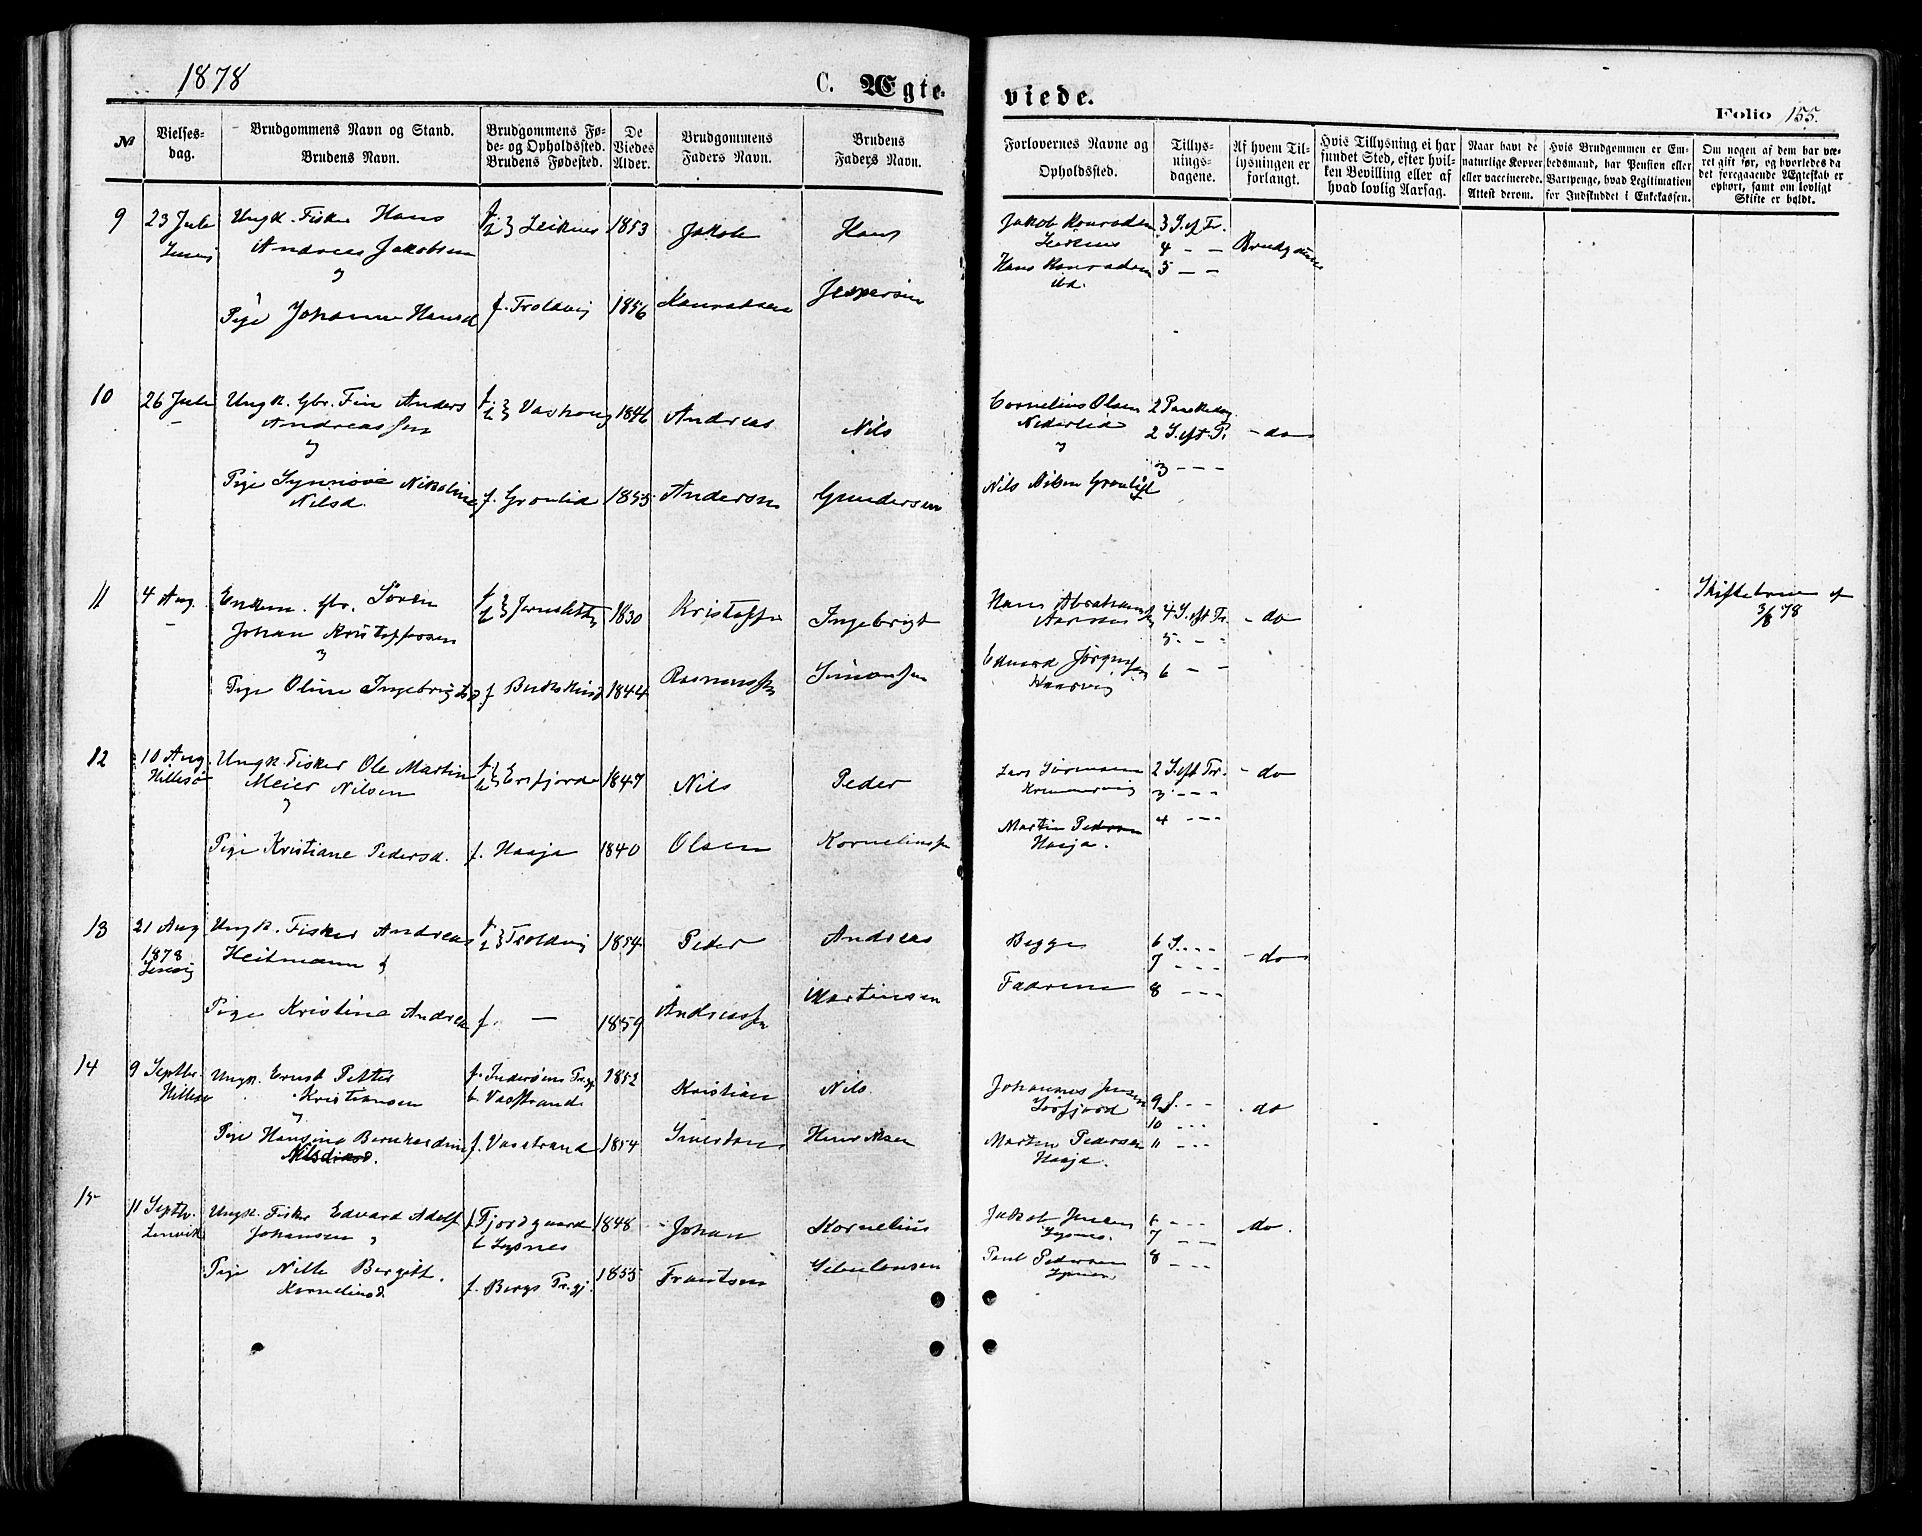 1878
C. Ægte-
viede.
Folio 155.
№
Vielses-
dag.
Brudgommens Navn og Stand.
Brudens Navn.
Brudgommens Fø-
de- og Opholdsfted.
Brudens Fødefted.
De
Viedes
Alder.
Brudgommens
Faders Navn.
Brudens
Faders Navn.
Forlovernes Navne og
Opholdsfted.
Tillys-
nings-
dagene.
Af hvem Til-
lysningen er
forlangt.
Hvis Tillysning ei har
fundet Sted, efter hvil-
ken Bevilling eller af
hvad lovlig Aarsag.
Naar havt de
naturlige Kopper
eller vaccinerede.
Attest derom.
Hvis Brudgommen er Em-
bedsmand, har Pension eller
Vartpenge, hvad Legitimation
for Indskuddet i Enkekassen.
Om nogen af dem har væ-
ret gift før, og hvorledes da
det foregaaende Ægteskab er
ophørt, samt om lovligt
Skifte er holdt.
9
23 Juli
Ungk. Fisker Hans
Andreas Jakobsen
Pige Johanne Hansd
f. Troldvig
1853
1856
Jakob
Konradsen
Hans
Jespersen
Jakob Konradsen
Hans Konradsen
ibd.
3 S. ef Tr.
4 - -
5 - -
Brudgommen
10
26 Juli
Ungk. Gbr. Fin Anders
Andreassen
Pige Synnøve Nikoline
Nilsd.
f. Grønlid
1846
1855
Andreas
Andersen
Nils
Gundersen
Cornelius Olsen
Nederlid
Nils Nilsen Grønlid
2 Paaskedag
2 S. eft. P.
3 - - -
- do
11
4 Aug.
Enkem. Gbr. Sören
Johan Kristoffersen
Pige Oline Ingebrigtsd
f Bukskind
1830
1844
Kristoffer
Rasmussen
Ingebrigt
Simonsen
Hans Abrahamsen
Edvard Jørgensen
4 S. eft Tr.
5 - -
6 -
- do
Skiftebrev af
3/8 78
12
10 Aug.
Hillesø
Ungk. Fisker Ole Martin
Meier Nilsen
Pige Kristiane Pedersd.
f.
b. } Ersfjord
f. Haaja
1847
1840
Nils
Olsen
Peder
Kornelius
Lars Sørensen
Martin Pedersen
Haaja.
2 S. eft Tr.
3 - - -
4 - - -
- do
13
21 Aug
1878
Lenvig
Ungk. Fisker Andreas
Heitmann
Pige Kristine Andrea
f.
b } Troldvig
f. —
1854
1859
Peder
Andreassen
Andreas
Martinsen
Begge
Fædrene
6 S. - -
7 - - -
8 - - -
- do
14
9 Septbr.
Hillesø
Ungk. Ernst Petter
Kristiansen
Pige Hansine Bernhardine
Nilsd.
f. Inderøens Pr.gj
b. Vasstrand
f. Vasstrand
1852
1854
Kristian
Nils
Henriksen
Johannes Jensen
Martin Pedersen
Haaja.
9 S. - -
10 - - -
11 - - -
- do
15
11 Septbr.
Lenvik
Ungk. Fisker Edvard Adolf
Johansen
Pige Nille Bergitt.
Kornelius d.
f. Fjordgaard
b Lysnes
f. Bergs Pr.gj.
1848
1855
Johan
Frantsen
Kornelius
Jakob Jensen
Lysnes.
Paul Pedersen
Lysnes
6 - - -
7 - -
8 - - -
do.